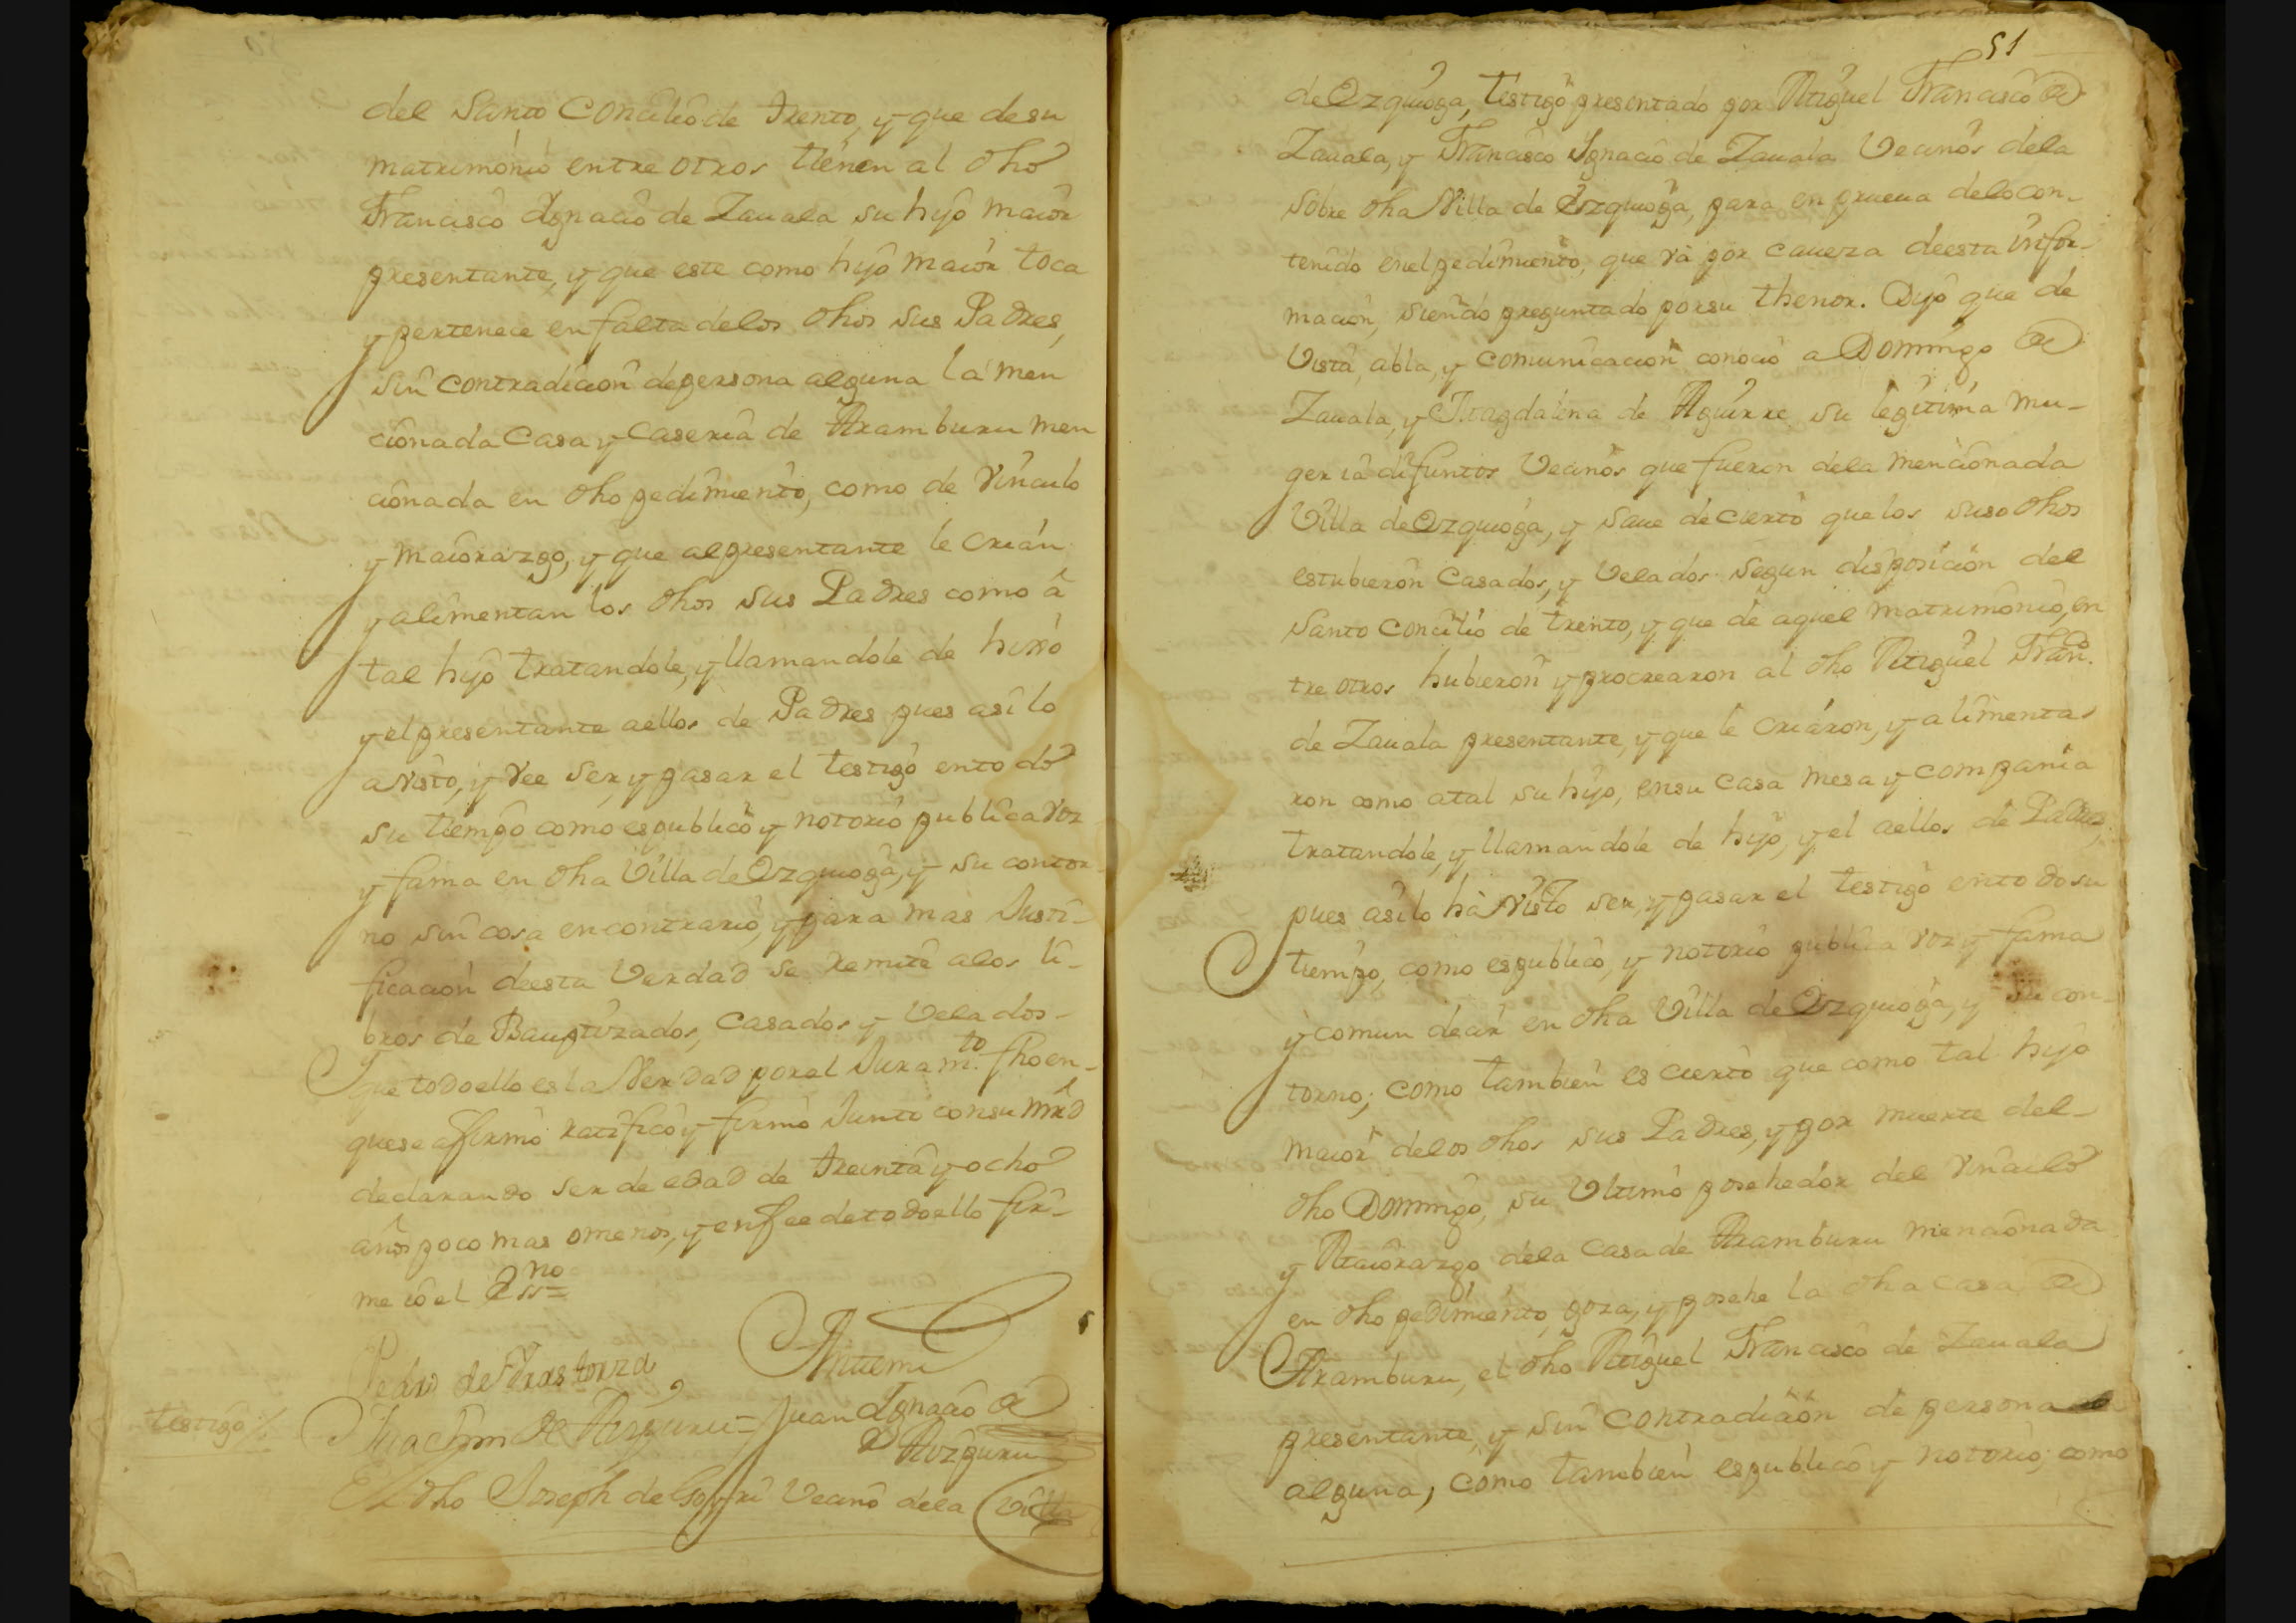 del Santo Concilio de trento, y que de su
matrimonio entre otros tienen al dho
Francisco Ygnacio de Zauala su hijo maior
presentante, y que este como hijo maior toca
y pertenece en falta delos dhos sus Padres,
sin contradicion de persona alguna la men
cionada Casa y Caseria de Aramburu men
cionada en dho pedimiento, como de Vinculo
y maiorazgo, y que al presentante le crian
y alimentan los dhos sus Padres como â
tal hijo tratandole, y llamandole de hixo
y el presentante aellos de Padres pues asi lo
a visto, y vee ser, y pasar el testigo en todo
su tiempo como es publico y notorio publica voz
y fama en dha Villa de Ozquioga, y su contor
no sin cosa en contrario, y para mas Justi-
ficacion de esta Verdad se remite alos li-
bros de Bauptizados, Casados y Velados-
Y que todo ello es la Verdad por el Juram.to fho en-
que se afirmò ratificò y firmò Junto con su mrd
declarando ser de edad de treinta y ocho
años poco mas o menos, y en fee de todo ello fir-
me io el Ess.no
Pedro de Anttemi
Juan Ygnacio de
testigo
El dho Joseph de Goyri Vecino dela Villa
51
de Ozquioga, testigo presentado por Miguel Francisco de
Zauala, y Francisco Ygnacio de Zauala Vecinos dela
sobre dha Villa de Ozquioga, para en prueua delo con-
tenido en el pedimiento, que và por caueza de esta infor-
macion, siendo preguntado por su thenor. Dijo que de
Vista, abla, y comunicacion conociò a Domingo de
Zauala, y Magdalena de Aguirre su legitima mu-
ger ia difuntos Vecinos que fueron dela mencionada
Villa de Ozquioga, y saue de cierto que los suso dhos
estubieron Casados, y Velados segun disposicion del
Santo Concilio de trento, y que de aquel matrimonio, en
tre otros hubieron y procrearon al dho Miguel Fran.co
de Zauala presentante, y que le criaron, y alimenta-
ron como atal su hijo, en su Casa mesa y compania
tratandole, y llamandole de hijo, y el aellos de Padres,
pues asi lo hà visto ser, y pasar el testigo en todo su
tiempo, como es publico, y notorio publica voz y fama
y comun decir en dha Villa de Ozquioga, y su con-
torno; como tambien es cierto que como tal hijo
maior delos dhos sus Padres, y por muerte del-
dho Domingo, su Ultimo posehedor del vinculo
y Maiorazgo dela Casa de Aramburu mencionada
en dho pedimiento, goza, y posehe la dha casa de
Aramburu, el dho Miguel Francisco de Zauala
presentante, y sin contradicion de persona
alguna, como tambien es publico y notorio; como